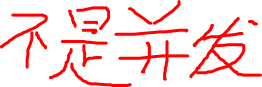 不是并发